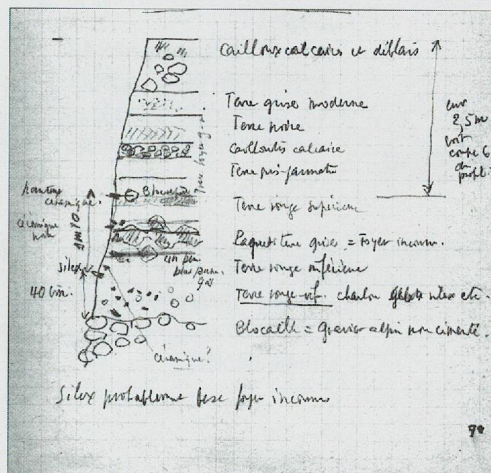 Cailloux calcaires et déblais
Terre grise moderne
Terre noire
Cailloutis calcaire
Terre
Terre rouge supérieure
Paquets terre grise = Foyer inconnu.
Terre rouge inférieure
Terre rouge inf. charbon silex etc.
Blocaille = gravier alpin non cimenté.
env
2,5 m
coupe G
du profil
céramique.
céramique
1m10
silex
40 cm.
un peu
plus
céramique?
Silex probablement base foyer inconnu